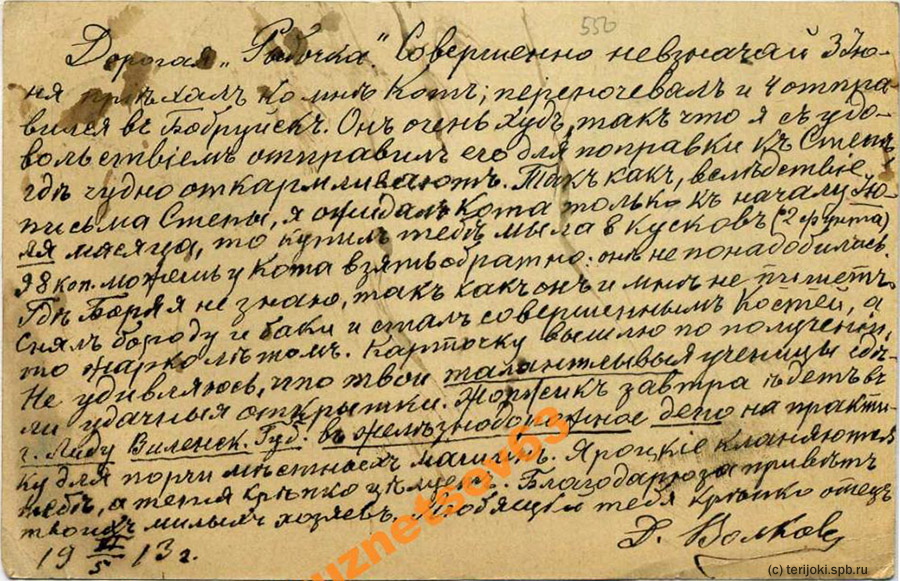 550
Дорогая „Рыбочка". Совершенно невзначай 3 Iю-
ня прiѣхалъ ко мнѣ Котъ; переночевалъ и 4 отпра
вился въ Бобруйскъ. Онъ очень худъ, такъ что я съ удо-
вольствiемъ отправилъ его для поправки къ Степѣ,
гдѣ чудно откармливаютъ. Такъ какъ, вслѣдствiе
письма Степы, я ожидалъ Кота только къ началу Iю-
ля мѣсяца, то купилъ тебѣ мыла 8 кусковъ (2 фунта)
98 коп. можешь у Кота взять обратно: онѣ не понадобились.
Гдѣ Боря я не знаю, такъ какъ онъ и мнѣ не пишетъ.
Снялъ бороду и баки и сталъ совершеннымъ Костей, а
то жарко лѣтомъ. Карточку вышлю по полученiи.
Не удивляюсь, что твои талантливыя ученицы сдѣ-
ли удачныя открытки. Жоржикъ завтра ѣдетъ въ
г. Лиду Виленск. Губ. въ желѣзнодорожное депо на практи-
ку для порчи мѣстныхъ машинъ. Яроцкiе кланяются
тебѣ, а тетя крѣпко цѣлуетъ. Благодарю за привѣтъ
твоихъ милыхъ хозяевъ. Любящiй тебя крѣпко отецъ
19 VI/5 13 г. Д. Волковъ
kuznetsov63
(c) terijoki.spb.ru